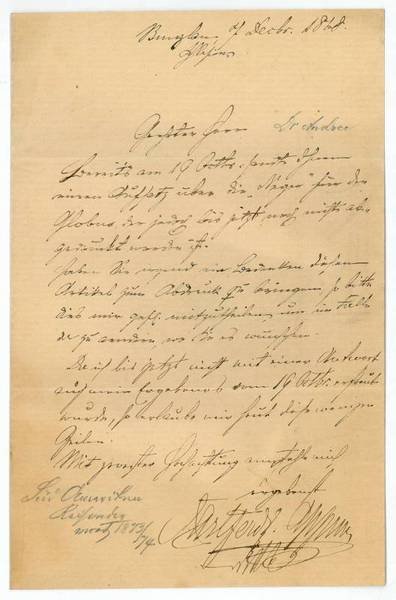 7 Decbr. 1868.
Geehrter Herr Dr Andree
Bereits am 19 Octbr. sandte Ihnen
einen Aufsatz über die "Neger" für den
Globus, der jedoch bis jetzt noch nicht ab-
gedruckt worden ist.
Haben Sie irgend ein Bedenken diesen
Artikel zum Abdruck zu bringen, so bitte
dies mir gefl. mitzutheilen, um im Falle
zu ändern, wo Sie es wünschen.
Da ich bis jetzt nicht mit einer Antwort
auf mein Ergebenes vom 19 Octbr. erfreut
wurde, so erlaube mir heut diese wenigen
Zeilen.
Mit grösster Hochachtung empfehle mich
ergebenst
Carl Ferd.
Amerika
Reisender
1873/74.